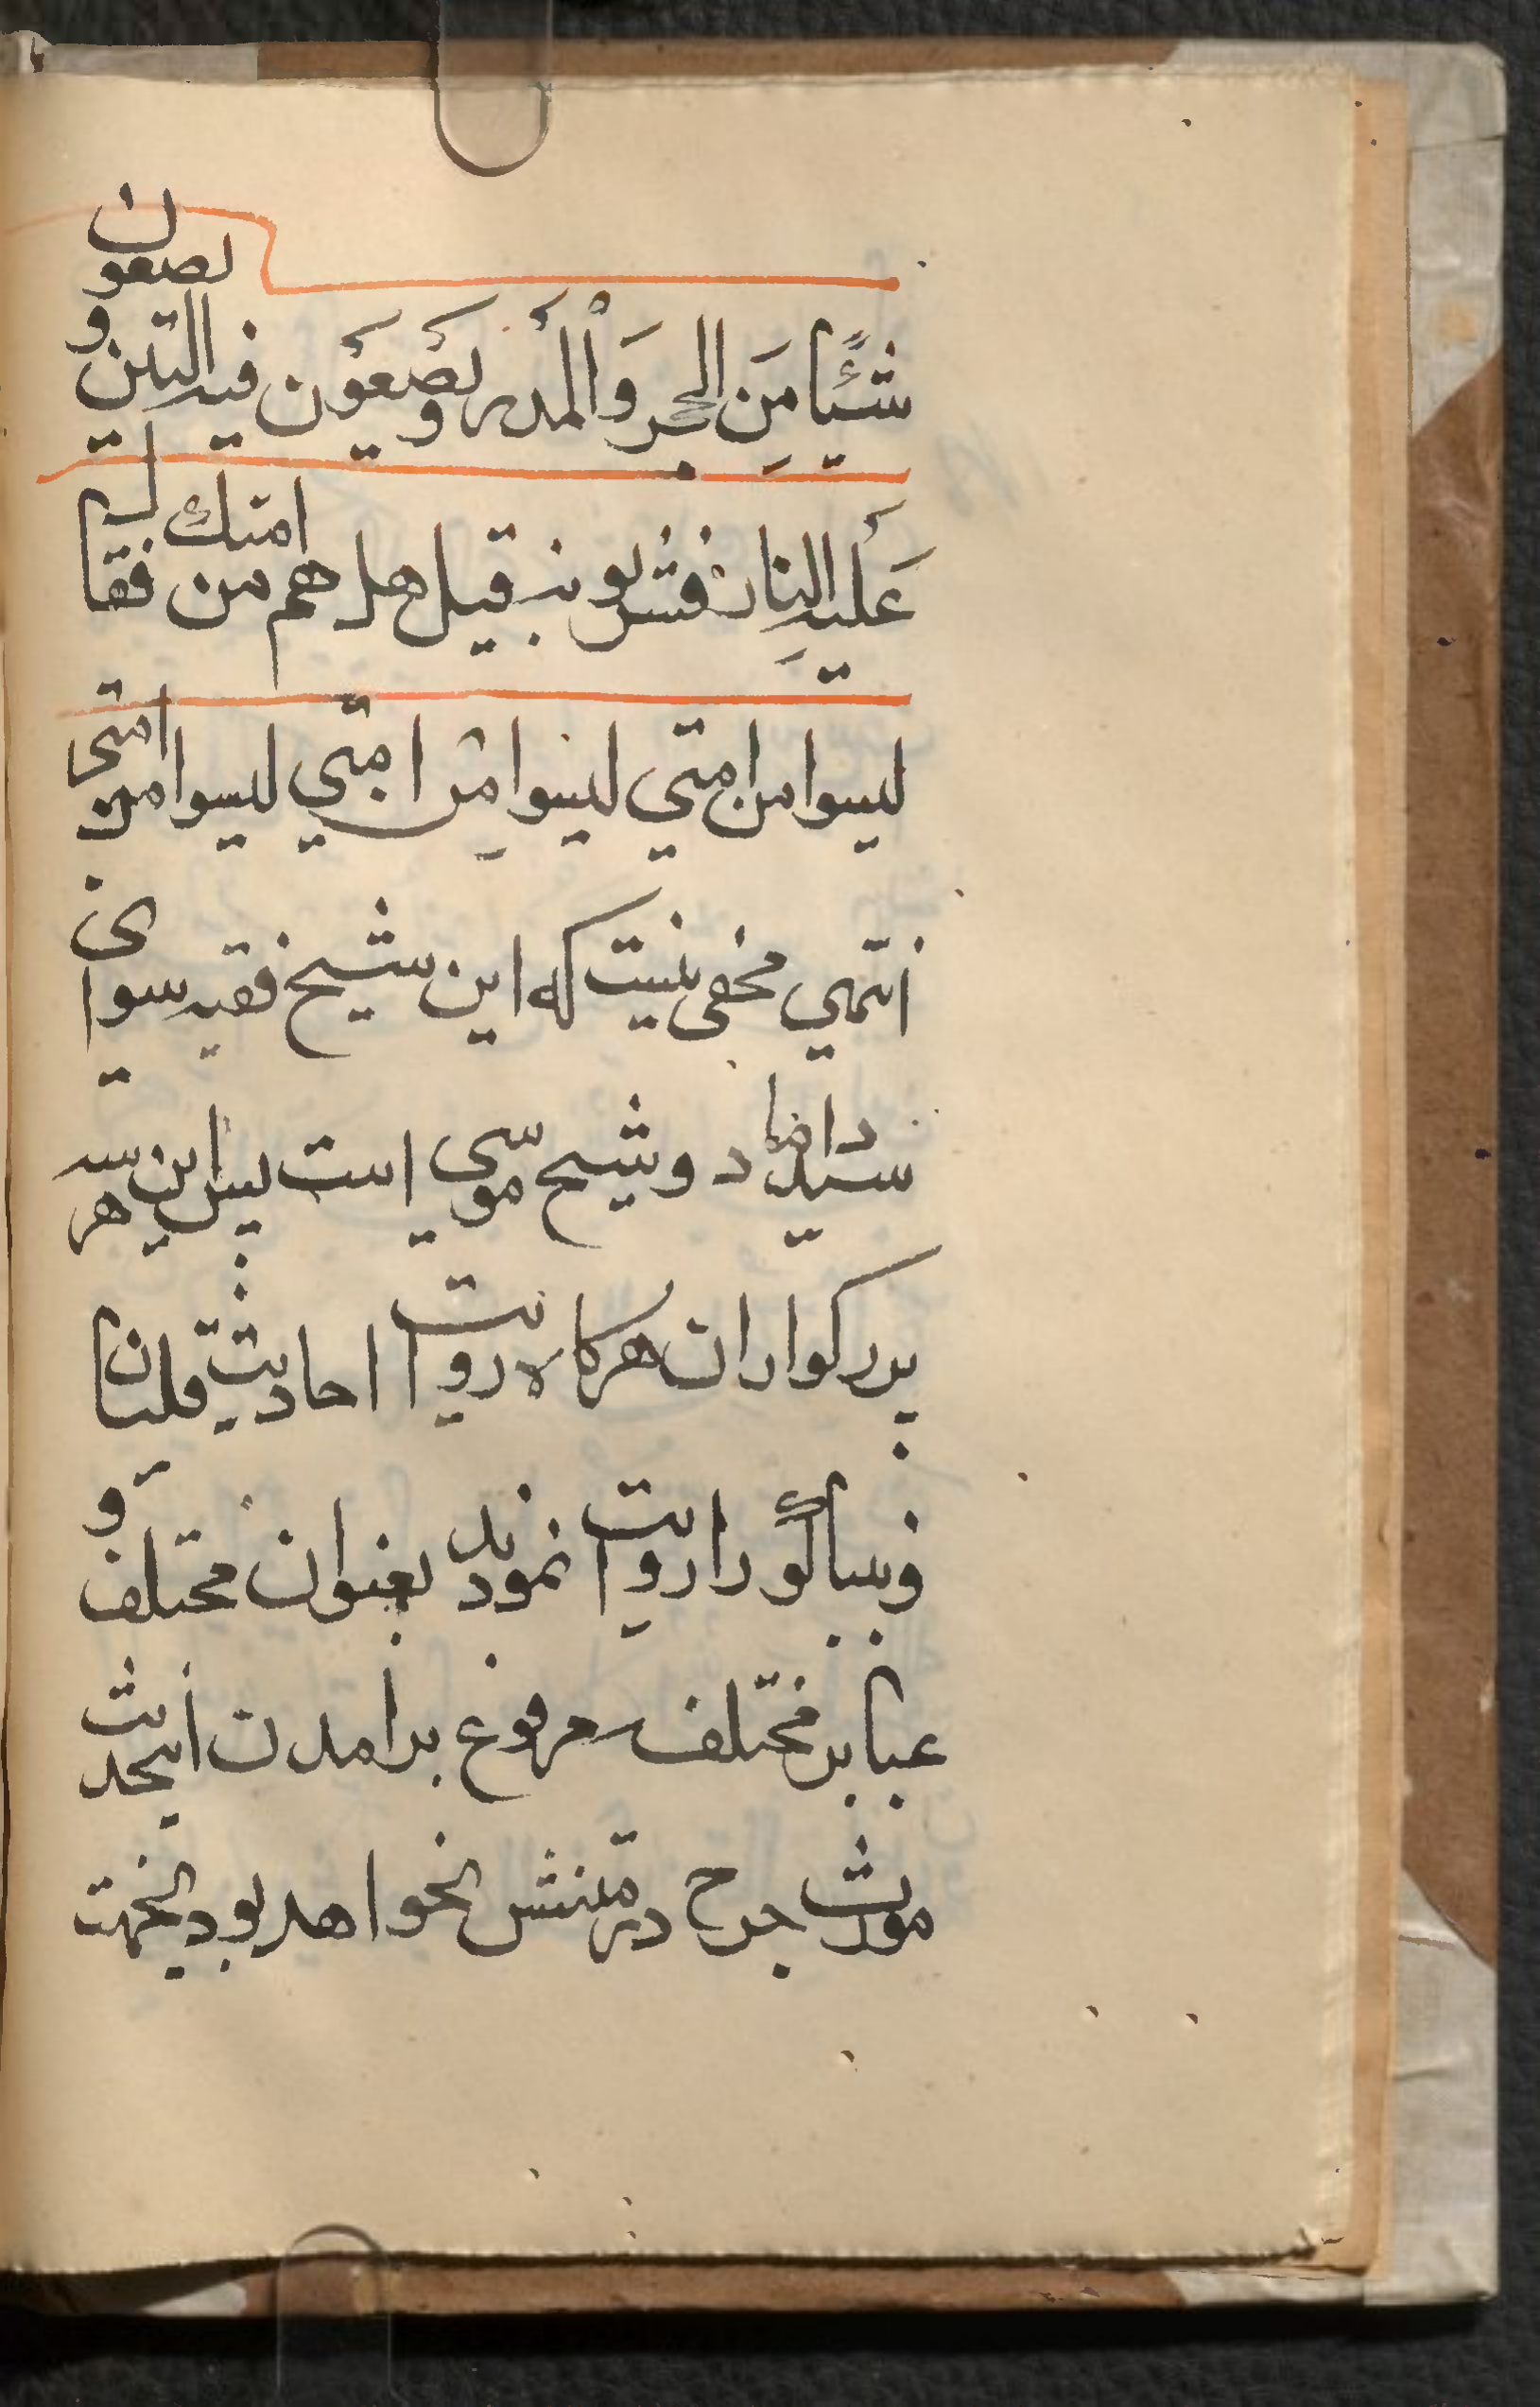 شَئًيا مَنِ الحجر وَالْمدر و يضَعَوُن فيه التبن و يضعون
عَليهِ النار فتشربونه قيل هل هم من امتك فقال
ليسوا من امتي ليسوا مِن امتي ليسوا من امتي
انتهي مخفی نیست که این شیخ فقیه سوای
سید داماد و شیخ موسی است پس این هر سه
بزرکواران هرکاه روایت احادیث قلیان
و تنباکو را روایت نمودند بعنوان مختلف و
عبایر مختلف مرفوع برامدن اینحدیث
مورث جرح در متنش نخواهد بود بلخمت